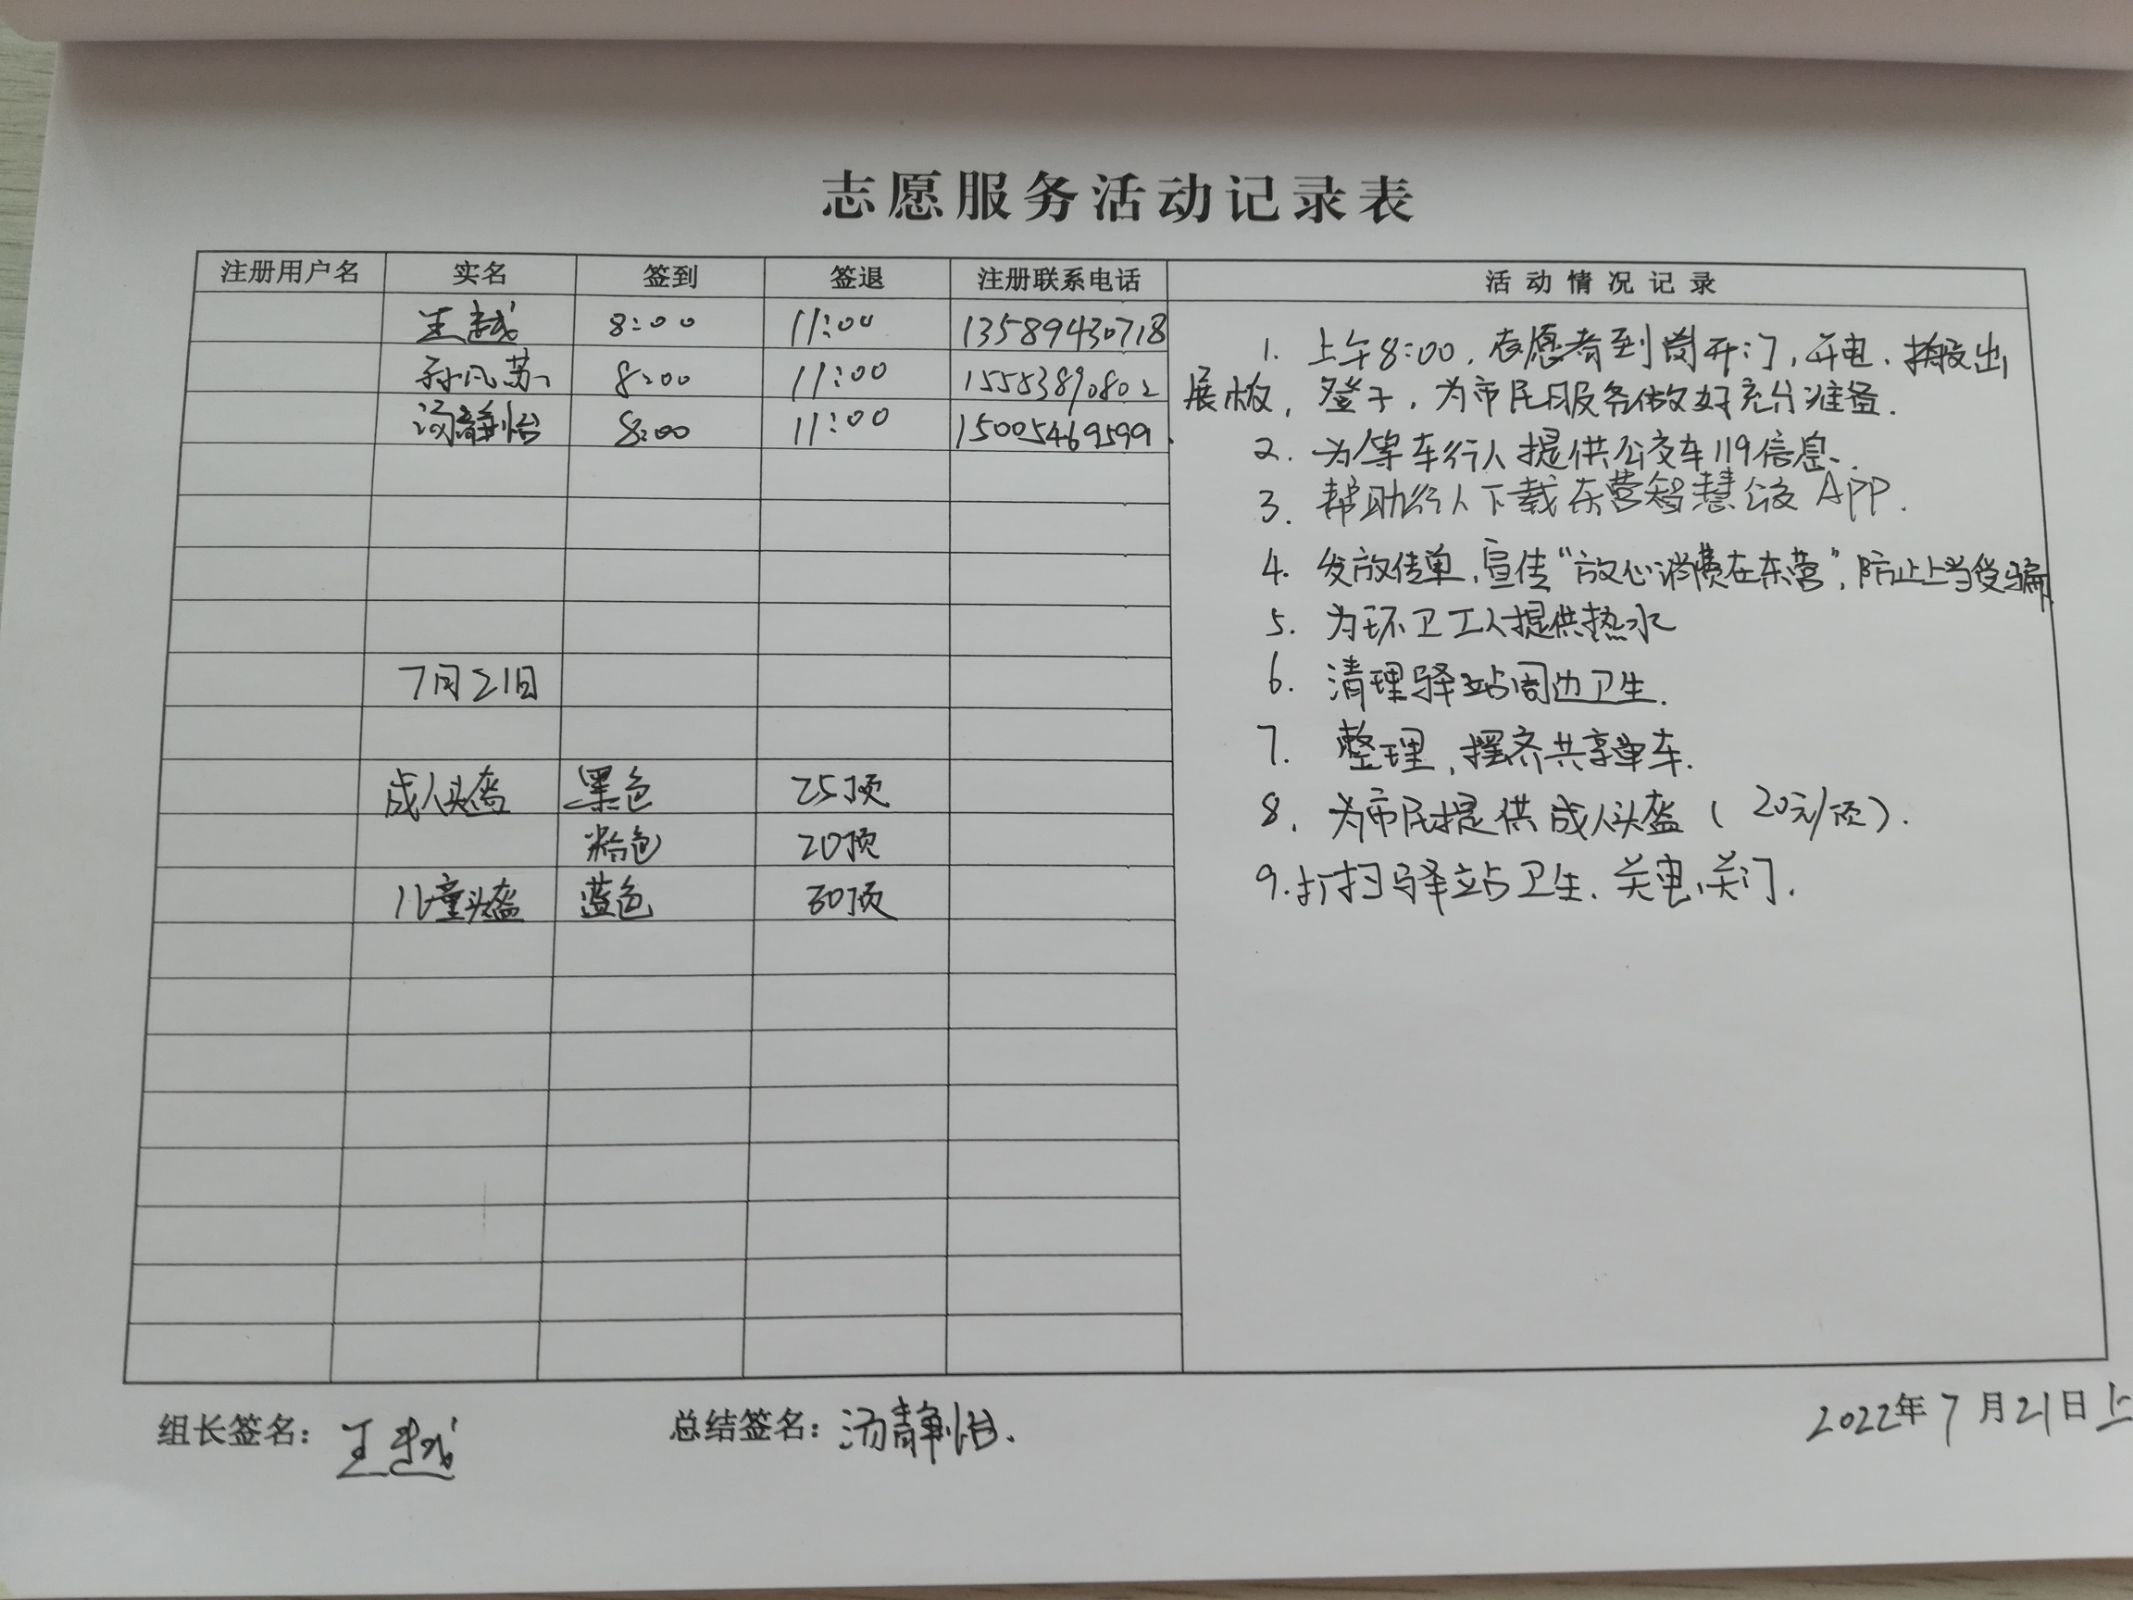 志愿服务活动记录表
注册用户名 实名 签到 签退 注册联系电话 活动情况记录
王越 8:00 11:00 13589430718
孙凡苏 8:00 11:00 15553890802
汤静怡 8:00 11:00 15005469599
7月21日
成人头盔 黑色 25顶
粉色 20顶
儿童头盔 蓝色 30顶
1. 上午8:00,志愿者到岗开门,开电,搬出
展板,凳子,为市民服务做好充分准备.
2. 为等车行人提供公交车119信息.
3. 帮助行人下载东营智慧公交APP.
4. 发放传单,宣传“放心消费在东营”,防止上当受骗.
5. 为环卫工人提供热水
6. 清理驿站周边卫生.
7. 整理,摆齐共享单车.
8. 为市民提供成人头盔(20元/顶).
9.打扫驿站卫生.关电,关门.
组长签名: 王越 总结签名: 汤静怡. 2022年7月21日上